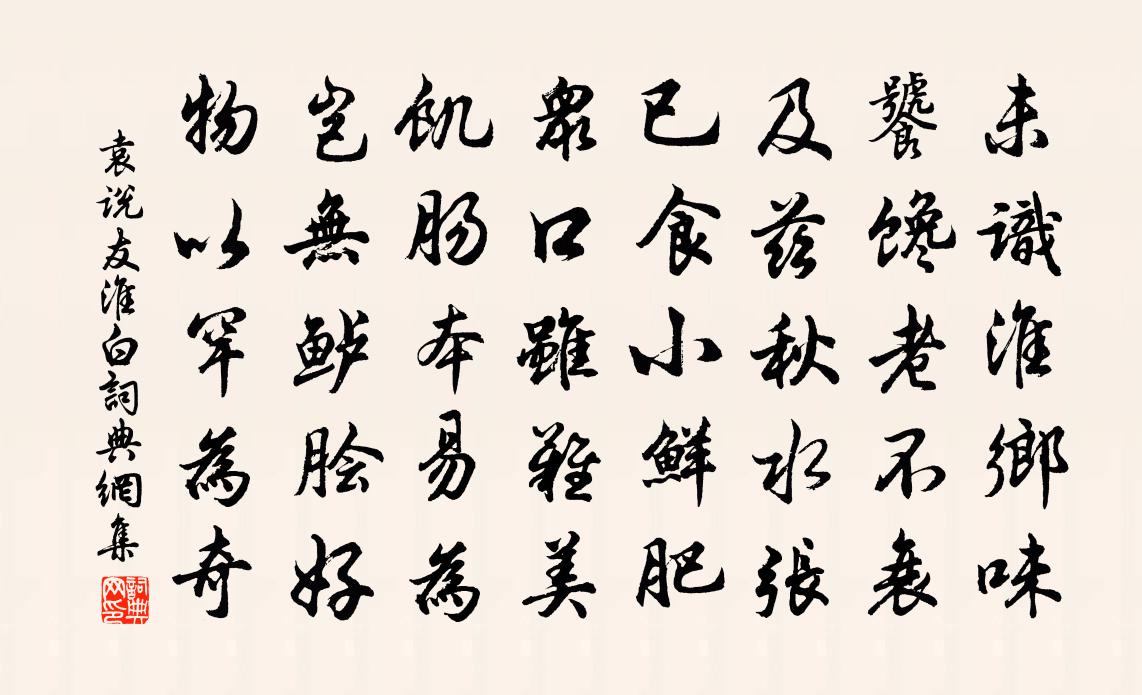 未識淮鄉味
饕馋老不衰
及茲秋水張
已食小鮮肥
眾口雖難美
飢肠本易為
豈無鲈脍好
物以罕為奇
袁说友淮白詞典網集
詞典网印